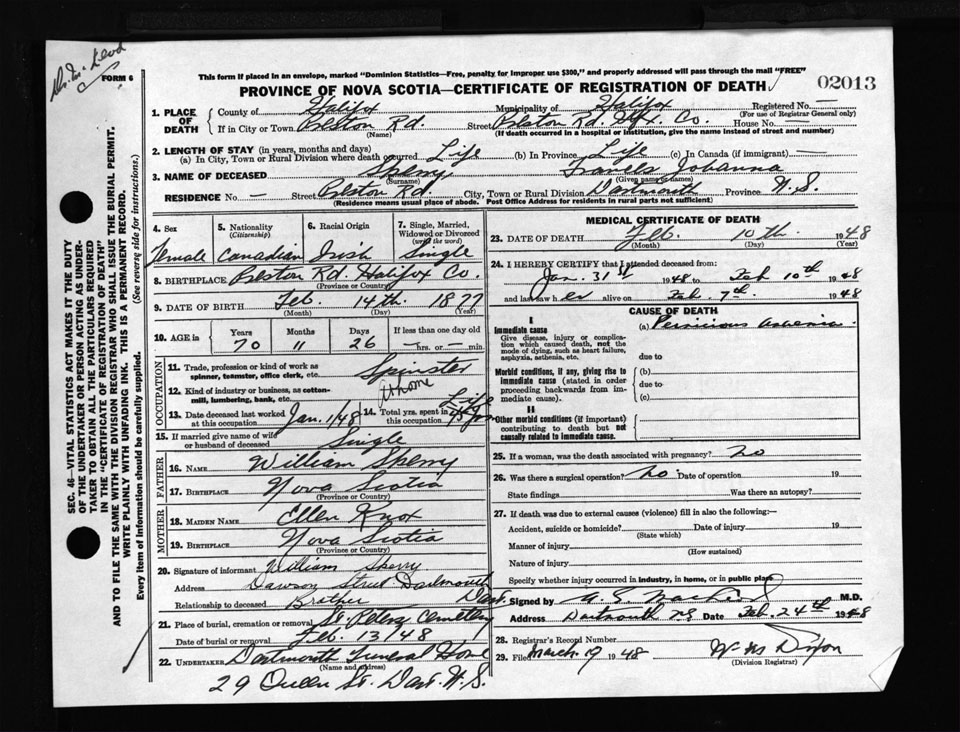 Dr. McLeod
FORM 6
This form if placed in an envelope, marked "Dominion Statistics—Free, penalty for improper use $300," and properly addressed will pass through the mail "FREE"
02013
PROVINCE OF NOVA SCOTIA—CERTIFICATE OF REGISTRATION OF DEATH
1. PLACE OF DEATH County of Halifax Municipality of Halifax Registered No. —
(For use of Registrar General only)
If in City or Town Preston Rd. Street Preston Rd. Hfx. Co. House No. —
(Name) (If death occurred in a hospital or institution, give the name instead of street and number)
2. LENGTH OF STAY (in years, months and days)
(a) In City, Town or Rural Division where death occurred Life (b) In Province Life (c) In Canada (if immigrant) —
3. NAME OF DECEASED Sperry Frances Johanna
(Surname) (Given name or names)
RESIDENCE No. Street Preston Rd. City, Town or Rural Division Dartmouth Province N.S.
(Residence means usual place of abode. Post Office Address for residents in rural parts not sufficient)
4. Sex 5. Nationality (Citizenship) 6. Racial Origin 7. Single, Married, Widowed or Divorced (write the word)
Female Canadian Irish Single
8. BIRTHPLACE Preston Rd. Halifax Co.
(Province or Country)
9. DATE OF BIRTH Feb. 14th. 1877
(Month) (Day) (Year)
10. AGE in Years Months Days If less than one day old
70 11 26 — hrs. or — min.
OCCUPATION
11. Trade, profession or kind of work as spinner, teamster, office clerk, etc. Spinster
12. Kind of industry or business, as cotton-mill, lumbering, bank, etc. at home
13. Date deceased last worked at this occupation Jan. 1/48 14. Total yrs. spent in this occupation Life
15. If married give name of wife or husband of deceased Single
FATHER
16. NAME William Sperry
17. BIRTHPLACE Nova Scotia
(Province or Country)
MOTHER
18. MAIDEN NAME Ellen Knox
19. BIRTHPLACE Nova Scotia
(Province or Country)
20. Signature of informant William Sperry
Address Dawson Street Dartmouth
Relationship to deceased Brother Dart.
21. Place of burial, cremation or removal St. Peters Cemetery
Date of burial or removal Feb. 13/48
22. UNDERTAKER Dartmouth Funeral Home
(Name and address)
29 Queen St. Dart. N.S.
MEDICAL CERTIFICATE OF DEATH
23. DATE OF DEATH Feb. 10th 1948
(Month) (Day) (Year)
24. I HEREBY CERTIFY that I attended deceased from:
Jan. 31st 1948 to Feb 10th 1948
and last saw her alive on Feb. 7th. 1948
CAUSE OF DEATH
I
Immediate cause (a) Pernicious Anemia.
Give disease, injury or complication which caused death, not the mode of dying, such as heart failure, asphyxia, asthenia, etc.
due to
Morbid conditions, if any, giving rise to immediate cause (stated in order proceeding backwards from immediate cause). (b)
due to
(c)
II
Other morbid conditions (if important) contributing to death but not causally related to immediate cause.
25. If a woman, was the death associated with pregnancy? no
26. Was there a surgical operation? no. Date of operation 19
State findings Was there an autopsy?
27. If death was due to external causes (violence) fill in also the following:—
Accident, suicide or homicide? Date of injury 19
(State which)
Manner of injury
(How sustained)
Nature of injury
Specify whether injury occurred in industry, in home, or in public place
Signed by M.D.
Address Dartmouth N.S Date Feb. 24th 1948
28. Registrar's Record Number
29. Filed March 19 1948 W. M. Dixon
(Division Registrar)
SEC. 46—VITAL STATISTICS ACT MAKES IT THE DUTY
OF THE UNDERTAKER OR PERSON ACTING AS UNDER-
TAKER TO OBTAIN ALL THE PARTICULARS REQUIRED
IN THE "CERTIFICATE OF REGISTRATION OF DEATH"
AND TO FILE THE SAME WITH THE DIVISION REGISTRAR WHO SHALL ISSUE THE BURIAL PERMIT.
WRITE PLAINLY WITH UNFADING INK. THIS IS A PERMANENT RECORD.
Every item of information should be carefully supplied. (See reverse side for instructions.)